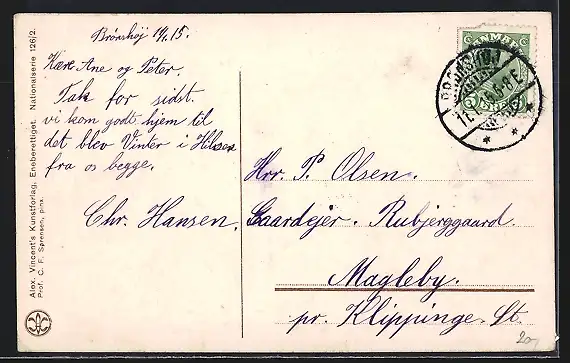 Brönshöj 11/1 15.
Kære Ane og Peter.
Tak for sidst.
vi kom godt hjem til
det blev Vinter i Hilsen
fra os begge.
Chr. Hansen.
Hrr. P. Olsen.
Gaardejer. Rubjerggaard.
Magleby.
pr. Klippinge. St.
DANMARK
BRØNSHØJ
Alex. Vincent's Kunstforlag, Eneberettiget. Nationalserie 126/2.
Prof. C. F. Sørensen, pinx.
20,-